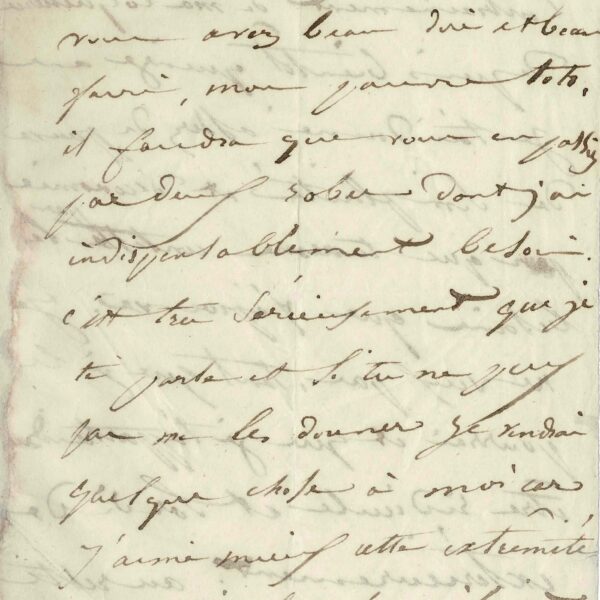 vous avez beau dire et beau
faire, mon pauvre toto,
il faudra que vous en passiez
par deux robes dont j'ai
indispensablement besoin.
c'est très sérieusement que je
te parle et si tu ne peux
pas me les donner je vendrai
quelque chose à moi car
j'aime mieux cette extrêmité